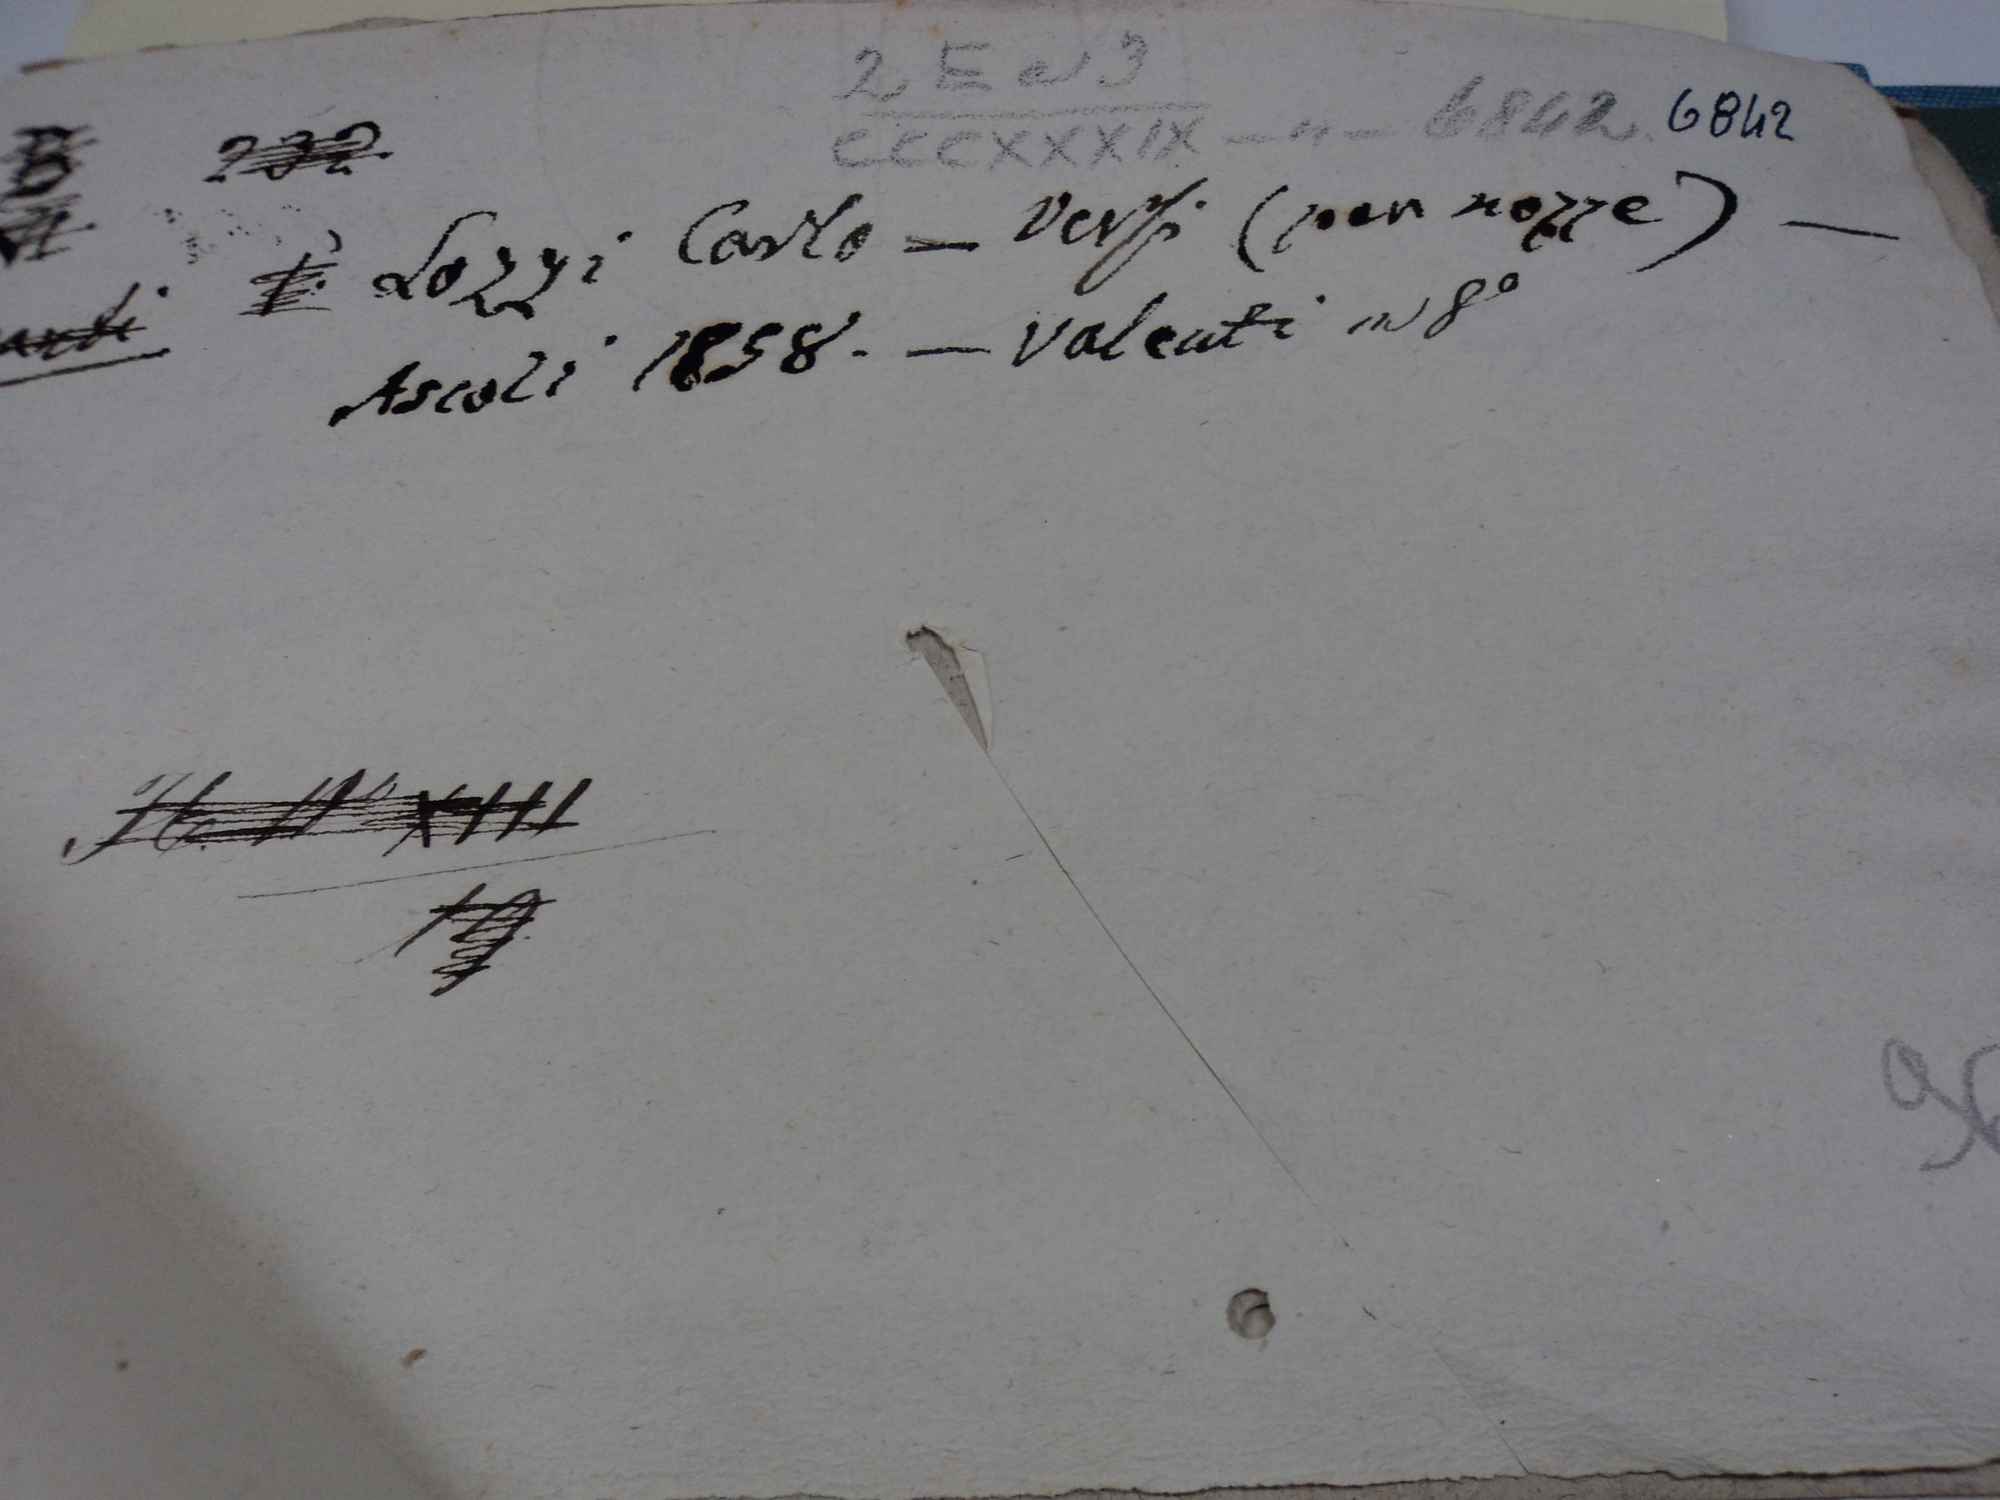 2 E a 3
CCCXXXIX — " — 6842 6842
232
Lozzi Carlo — Versi (per nozze) —
Ascoli 1858. — Valenti in 8°
N° XIII
19
96